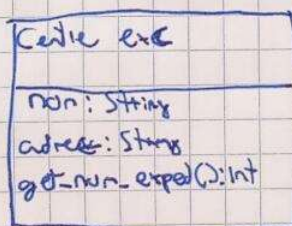 Centre exc
nom: String
adress: String
get_num_exped():int